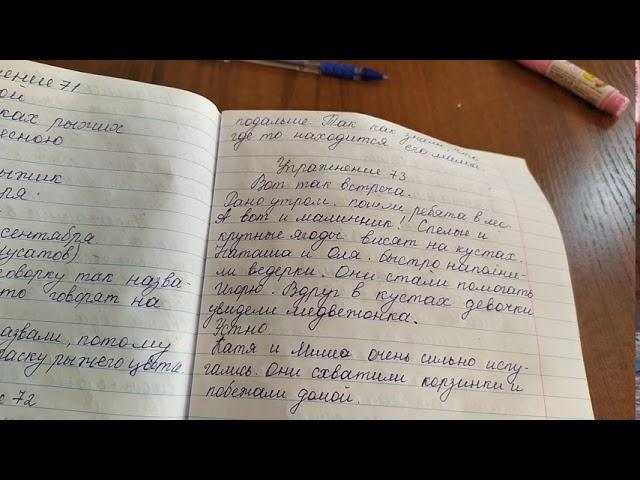 нение 71
ой
ках рыжих
есною
ыжик
ря.
сентября
усатов)
говорку так назва-
то говорат на
азвали, потому
раску рыжего цвета.
72
подальше. Так как знали, что
где то находится его мама
Упражнение 73
Вот так встреча.
Рано утром, пошли ребята в лес.
А вот и малинник! Спелые и
крупные ягоды висят на кустах.
Наташа и Оля. быстро наполни-
ли ведерки. Они стали помогать
Игорю. Вдруг в кустах девочки
увидели медвежонка.
Устно
Катя и Миша очень сильно испу-
гались. Они схватили корзинки и
побежали домой.